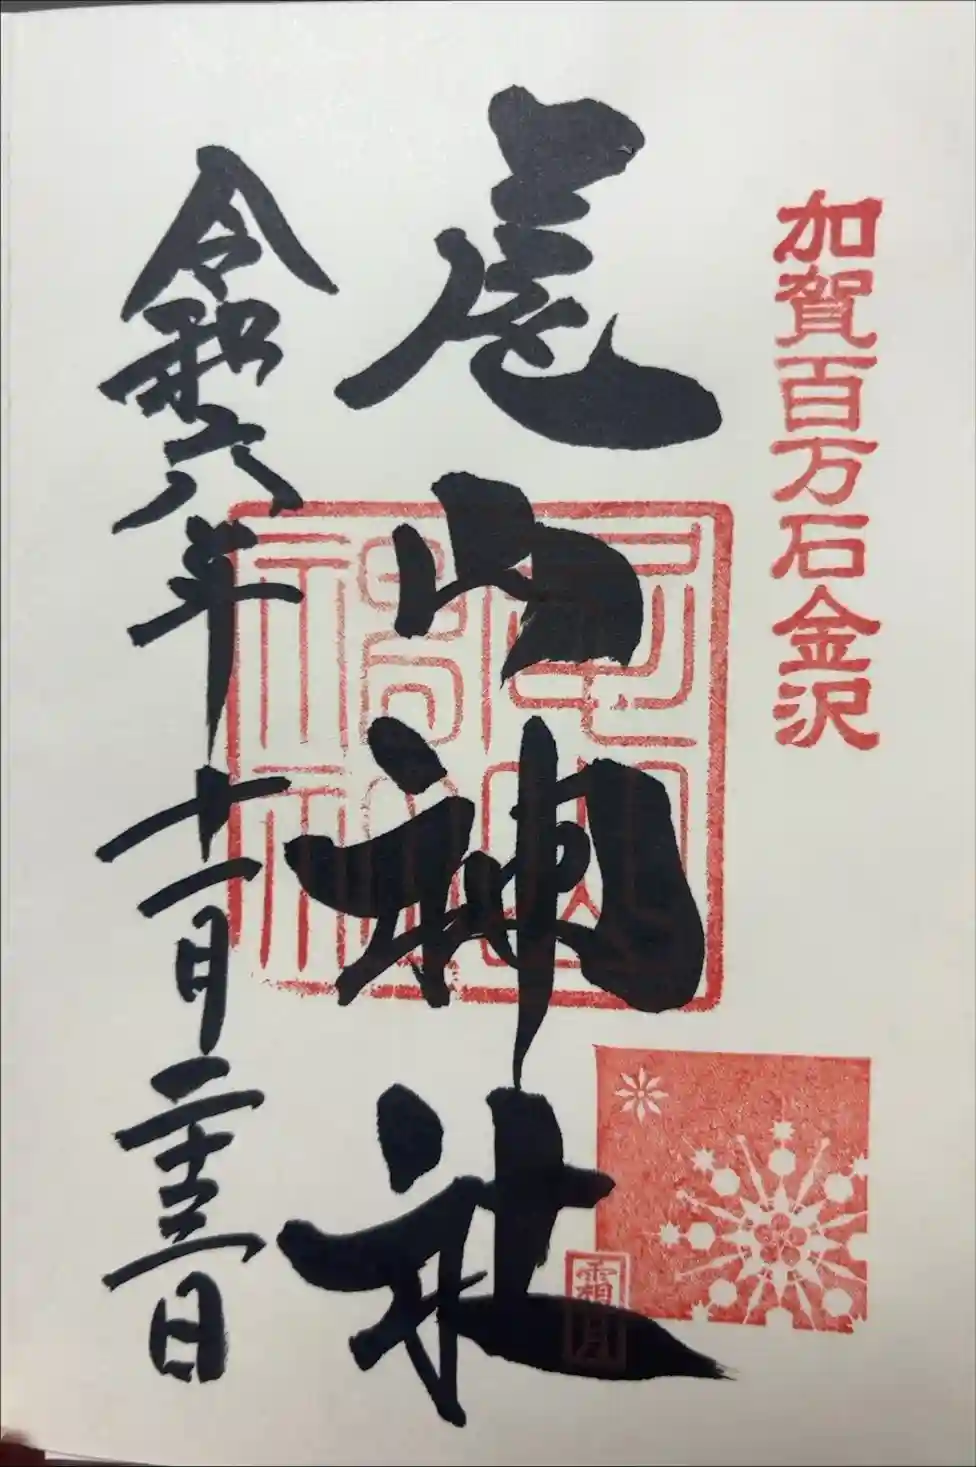 加賀百万石金沢
尾山神社
霜月
令和六年十一月二十三日